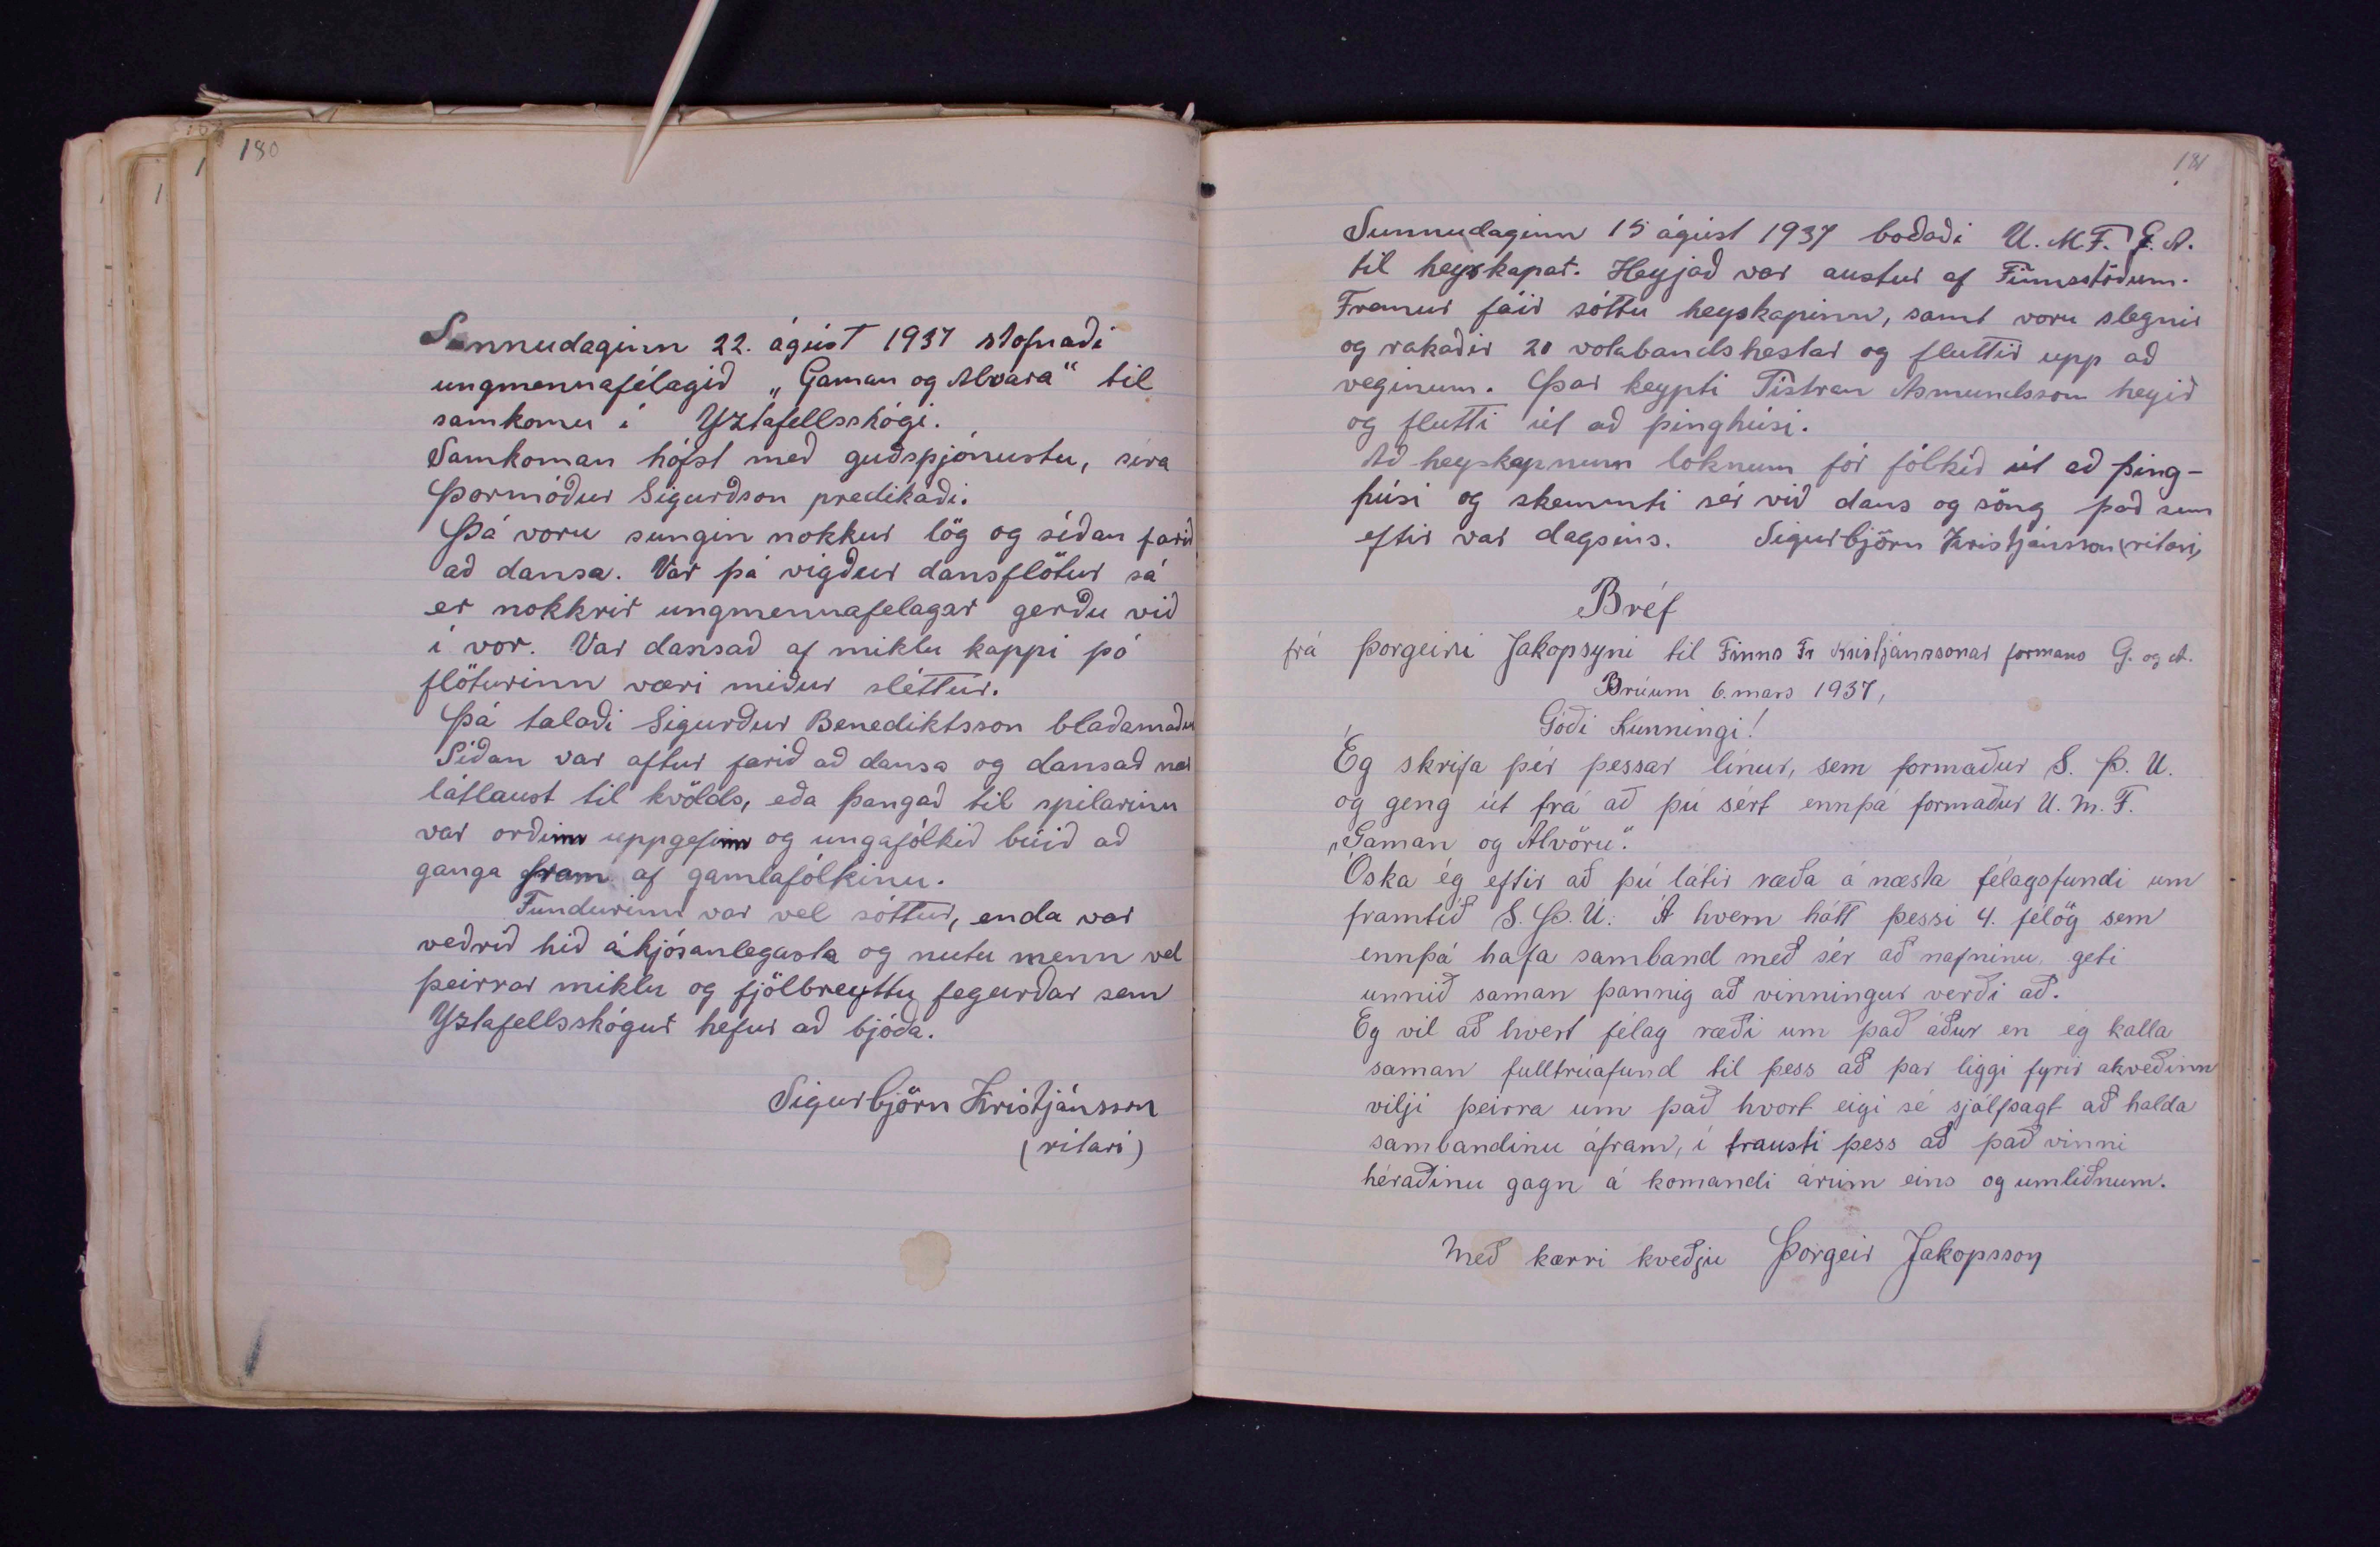 180
Sunnudaginn 22. ágúst 1937 stofnaði
ungmennafélagið „Gaman og Alvara" til
samkomu í Yztafellsskógi.
Samkoman hófst með guðsþjónustu, séra
Þormóður Sigurðson predikaði.
Þá voru sungin nokkur lög og síðan farið
að dansa. Var þá vígður dansflötur sá
er nokkrir ungmennafelagar gerðu við
í vor. Var dansað af miklu kappi þó
flöturinn væri miður sléttur.
Þá talaði Sigurður Benediktsson blaðamaður
Síðan var aftur farið að dansa og dansað nær
látlaust til kvölds, eða þangað til spilarinn
var orðinn uppgefinn og ungafólkið búið að
ganga fram af gamlafólkinu.
Fundurinn var vel sóttur, enda var
veðrið hið ákjósanlegasta og nutu menn vel
þeirrar miklu og fjölbreyttu fegurðar sem
Yztafellsskógur hefur að bjóða.
Sigurbjörn Kristjánsson
(ritari)
181
Sunnudaginn 15 ágúst 1937 boðaði U.M.F. G.A.
til heyskapar. Heyjað var austur af Finnsstöðum.
Fremur fáir sóttu heyskapinn, samt voru slegnir
og rakaðir 20 votabandshestar og fluttir upp að
veginum. Þar keypti Tistran Asmundsson heyið
og flutti út að þinghúsi.
Að heyskapnum loknum fór fólkið út að þing-
húsi og skemmti sér við dans og söng það sem
eftir var dagsins. Sigurbjörn Kristjánsson (ritari)
Bréf
frá Þorgeiri Jakopsyni til Finns Fr Kristjánssonar formans G. og A.
Brúum 6. mars 1937,
Góði Kunningi!
Ég skrifa þér þessar línur, sem formaður S. Þ. U.
og geng út frá að þú sért ennþá formaður U. M. F.
„Gaman og Alvöru".
Óska ég eftir að þú látir ræða á næsta félagsfundi um
framtíð S. Þ. U. Á hvern hátt þessi 4. félög sem
ennþá hafa samband með sér að nafninu, geti
unnið saman þannig að vinningur verði að.
Eg vil að hvert félag ræði um það áður en ég kalla
saman fulltrúafund til þess að þar liggi fyrir akveðinn
vilji þeirra um það hvort eigi sé sjálfsagt að halda
sambandinu áfram, í trausti þess að það vinni
héraðinu gagn á komandi árum eins og umliðnum.
Með kærri kveðju Þorgeir Jakopsson